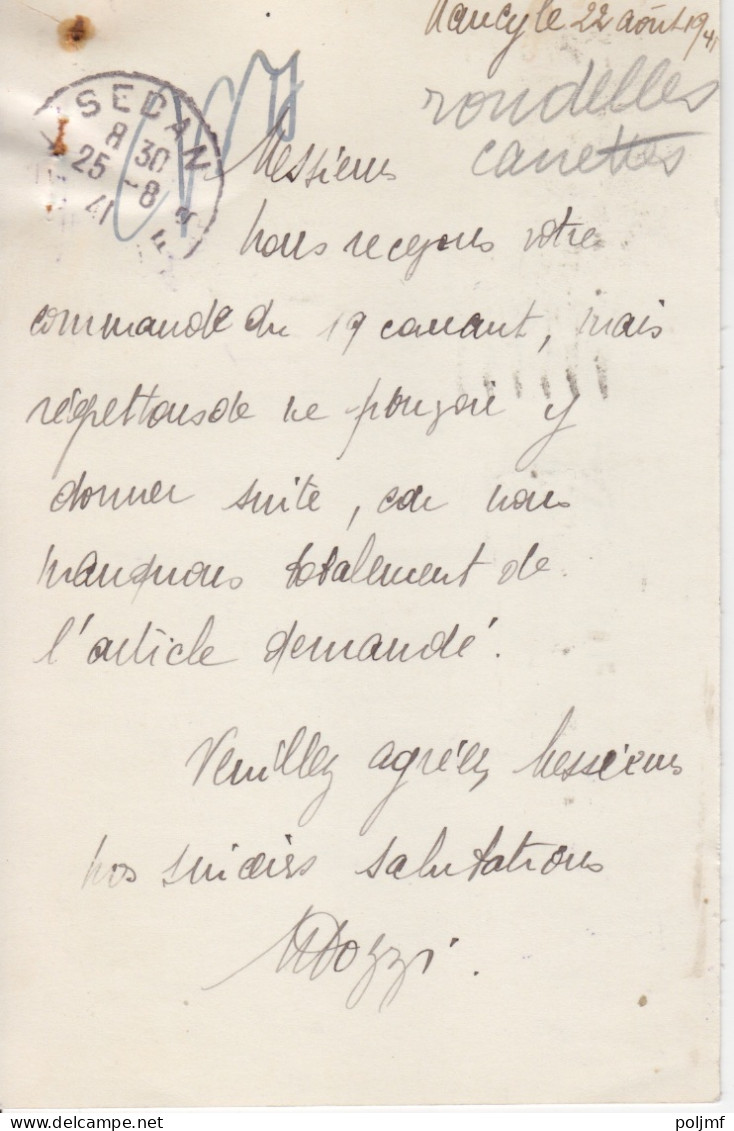 Nancy le 22 août 1941
rondelles
canettes
SEDAN
8 30
25 -8
41
Messieurs
Nous recevons votre
commande du 19 courant, mais
régrettons de ne pouvoir y
donner suite, car nous
manquons totalement de
l'article demandé.
Veuillez agréer, Messieurs
nos sincères salutations
poljmf